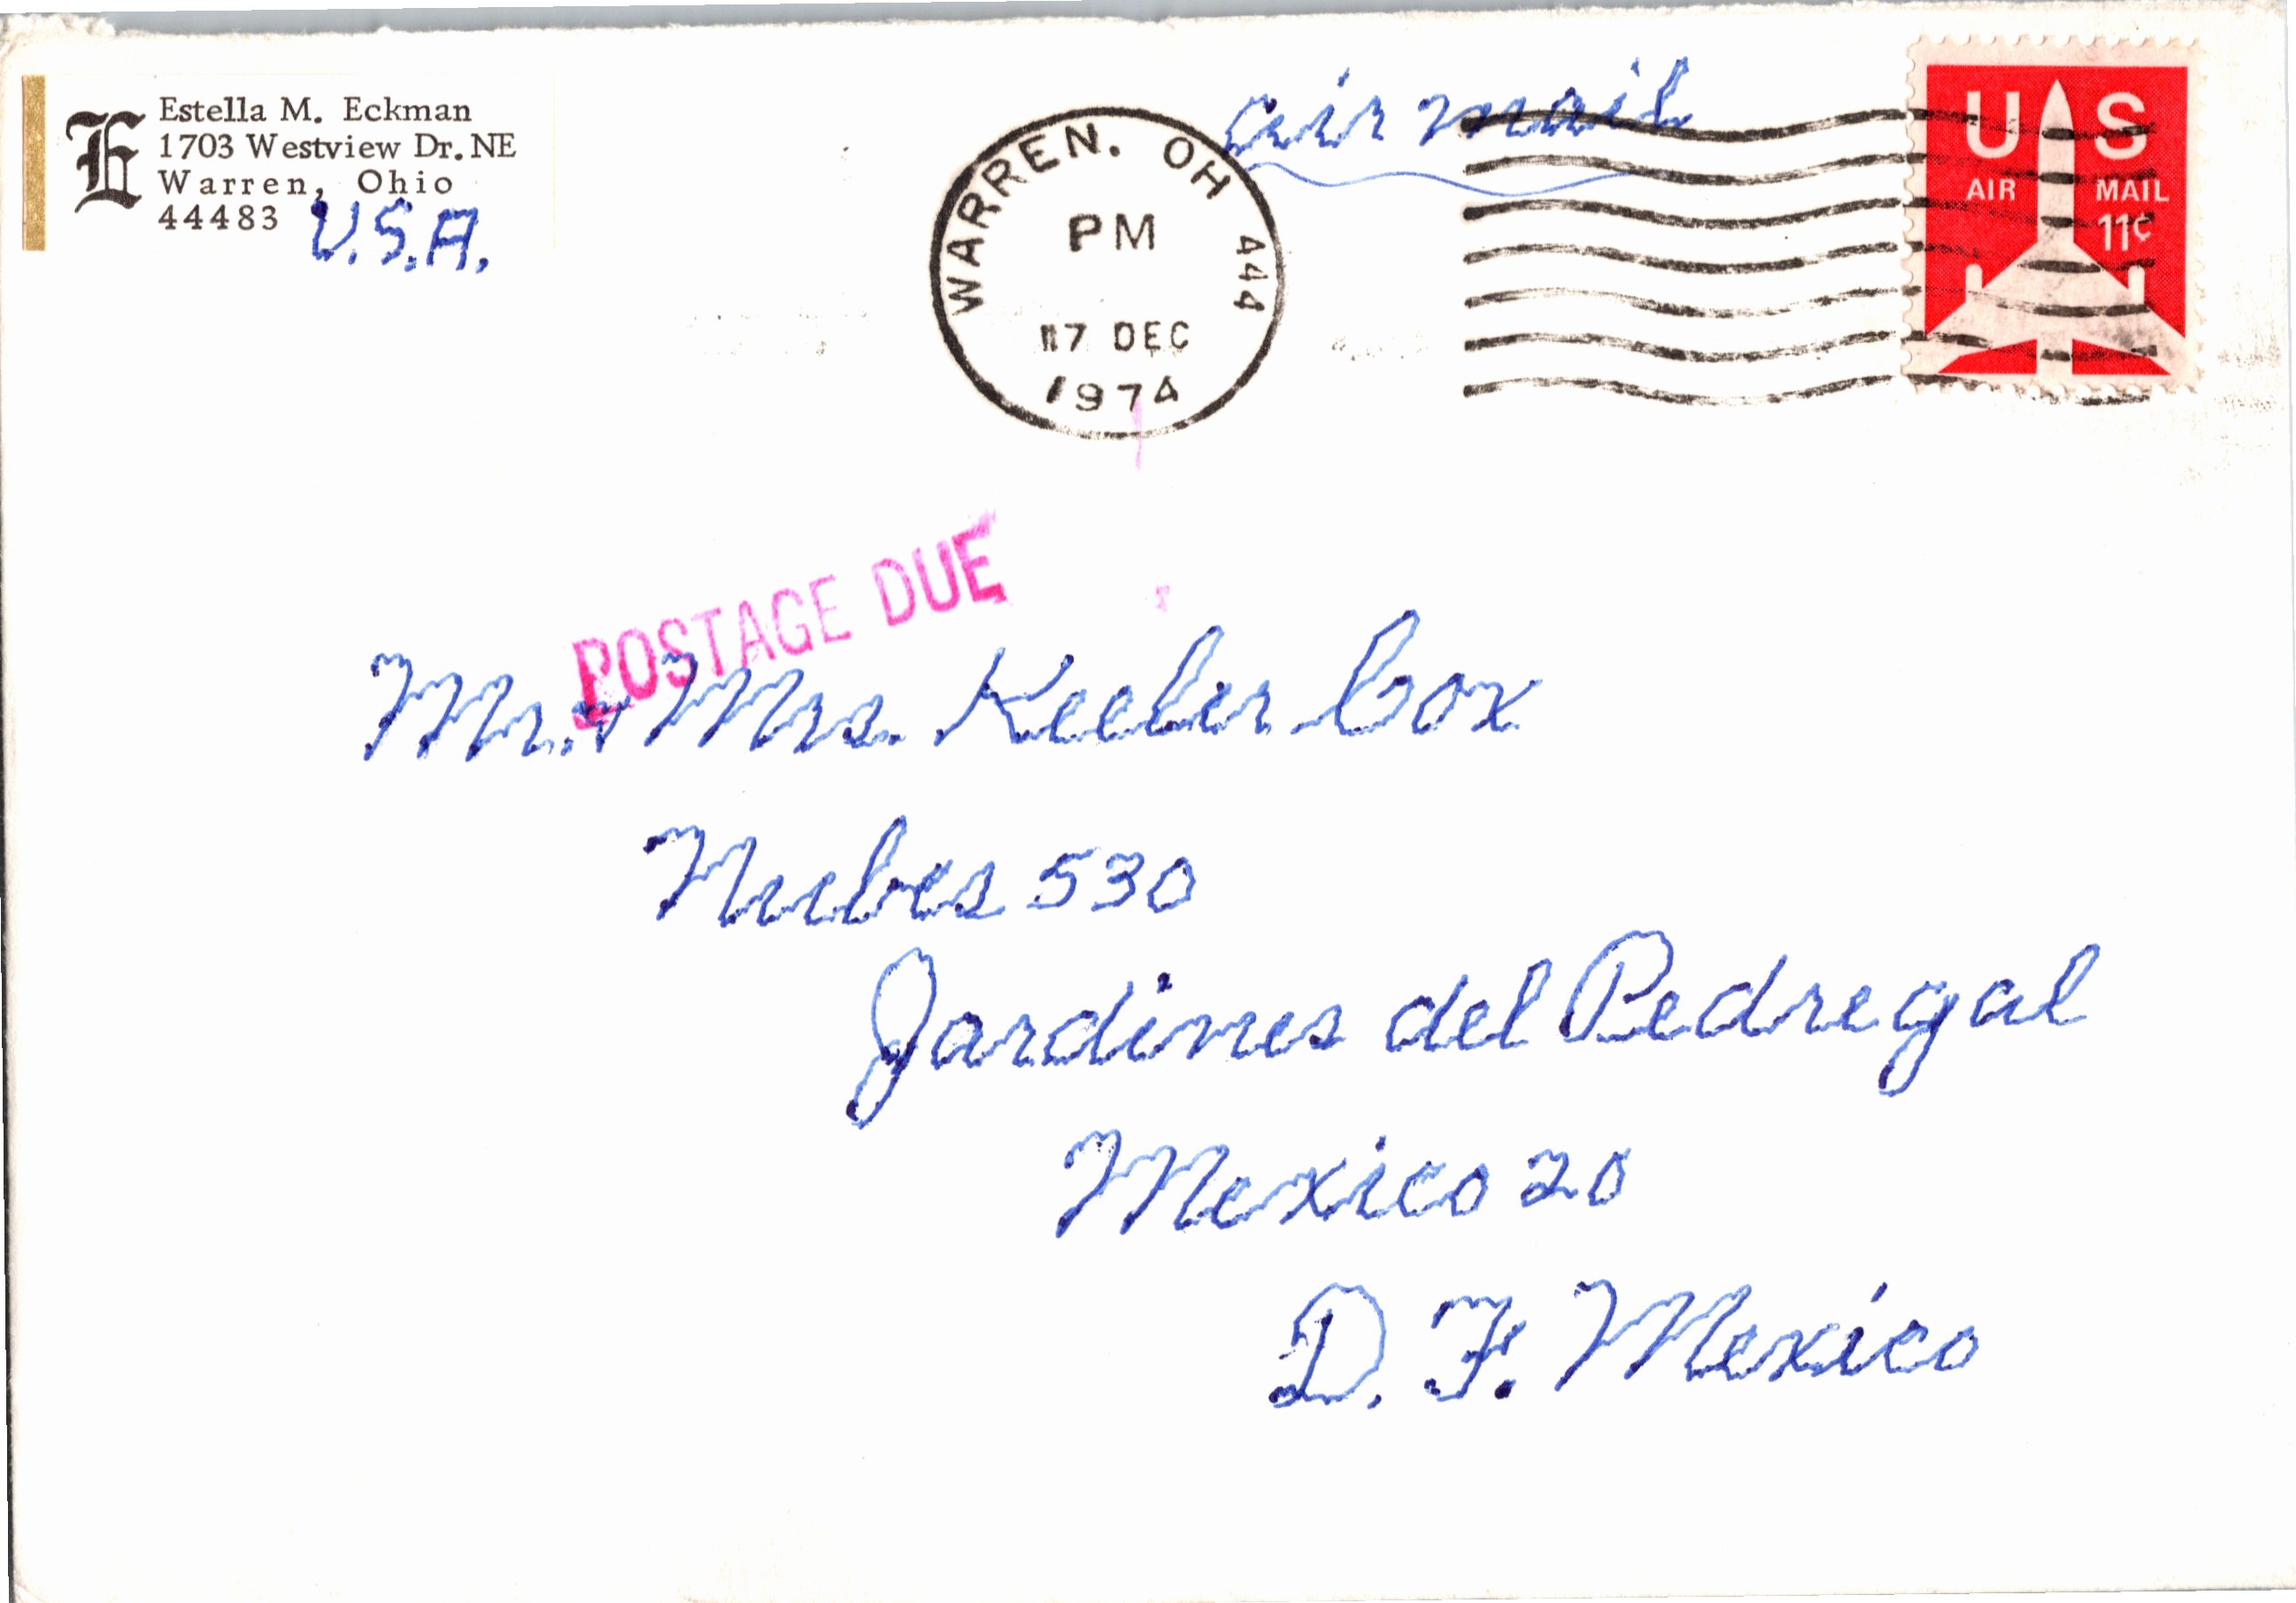 E
Estella M. Eckman
1703 Westview Dr. NE
Warren, Ohio
44483 U.S.A.
air mail
WARREN. OH 444
PM
17 DEC
1974
U S
AIR MAIL
11¢
POSTAGE DUE
Mr. & Mrs. Keeler Cox
Nubes 530
Jardines del Pedregal
Mexico 20
D. F. Mexico